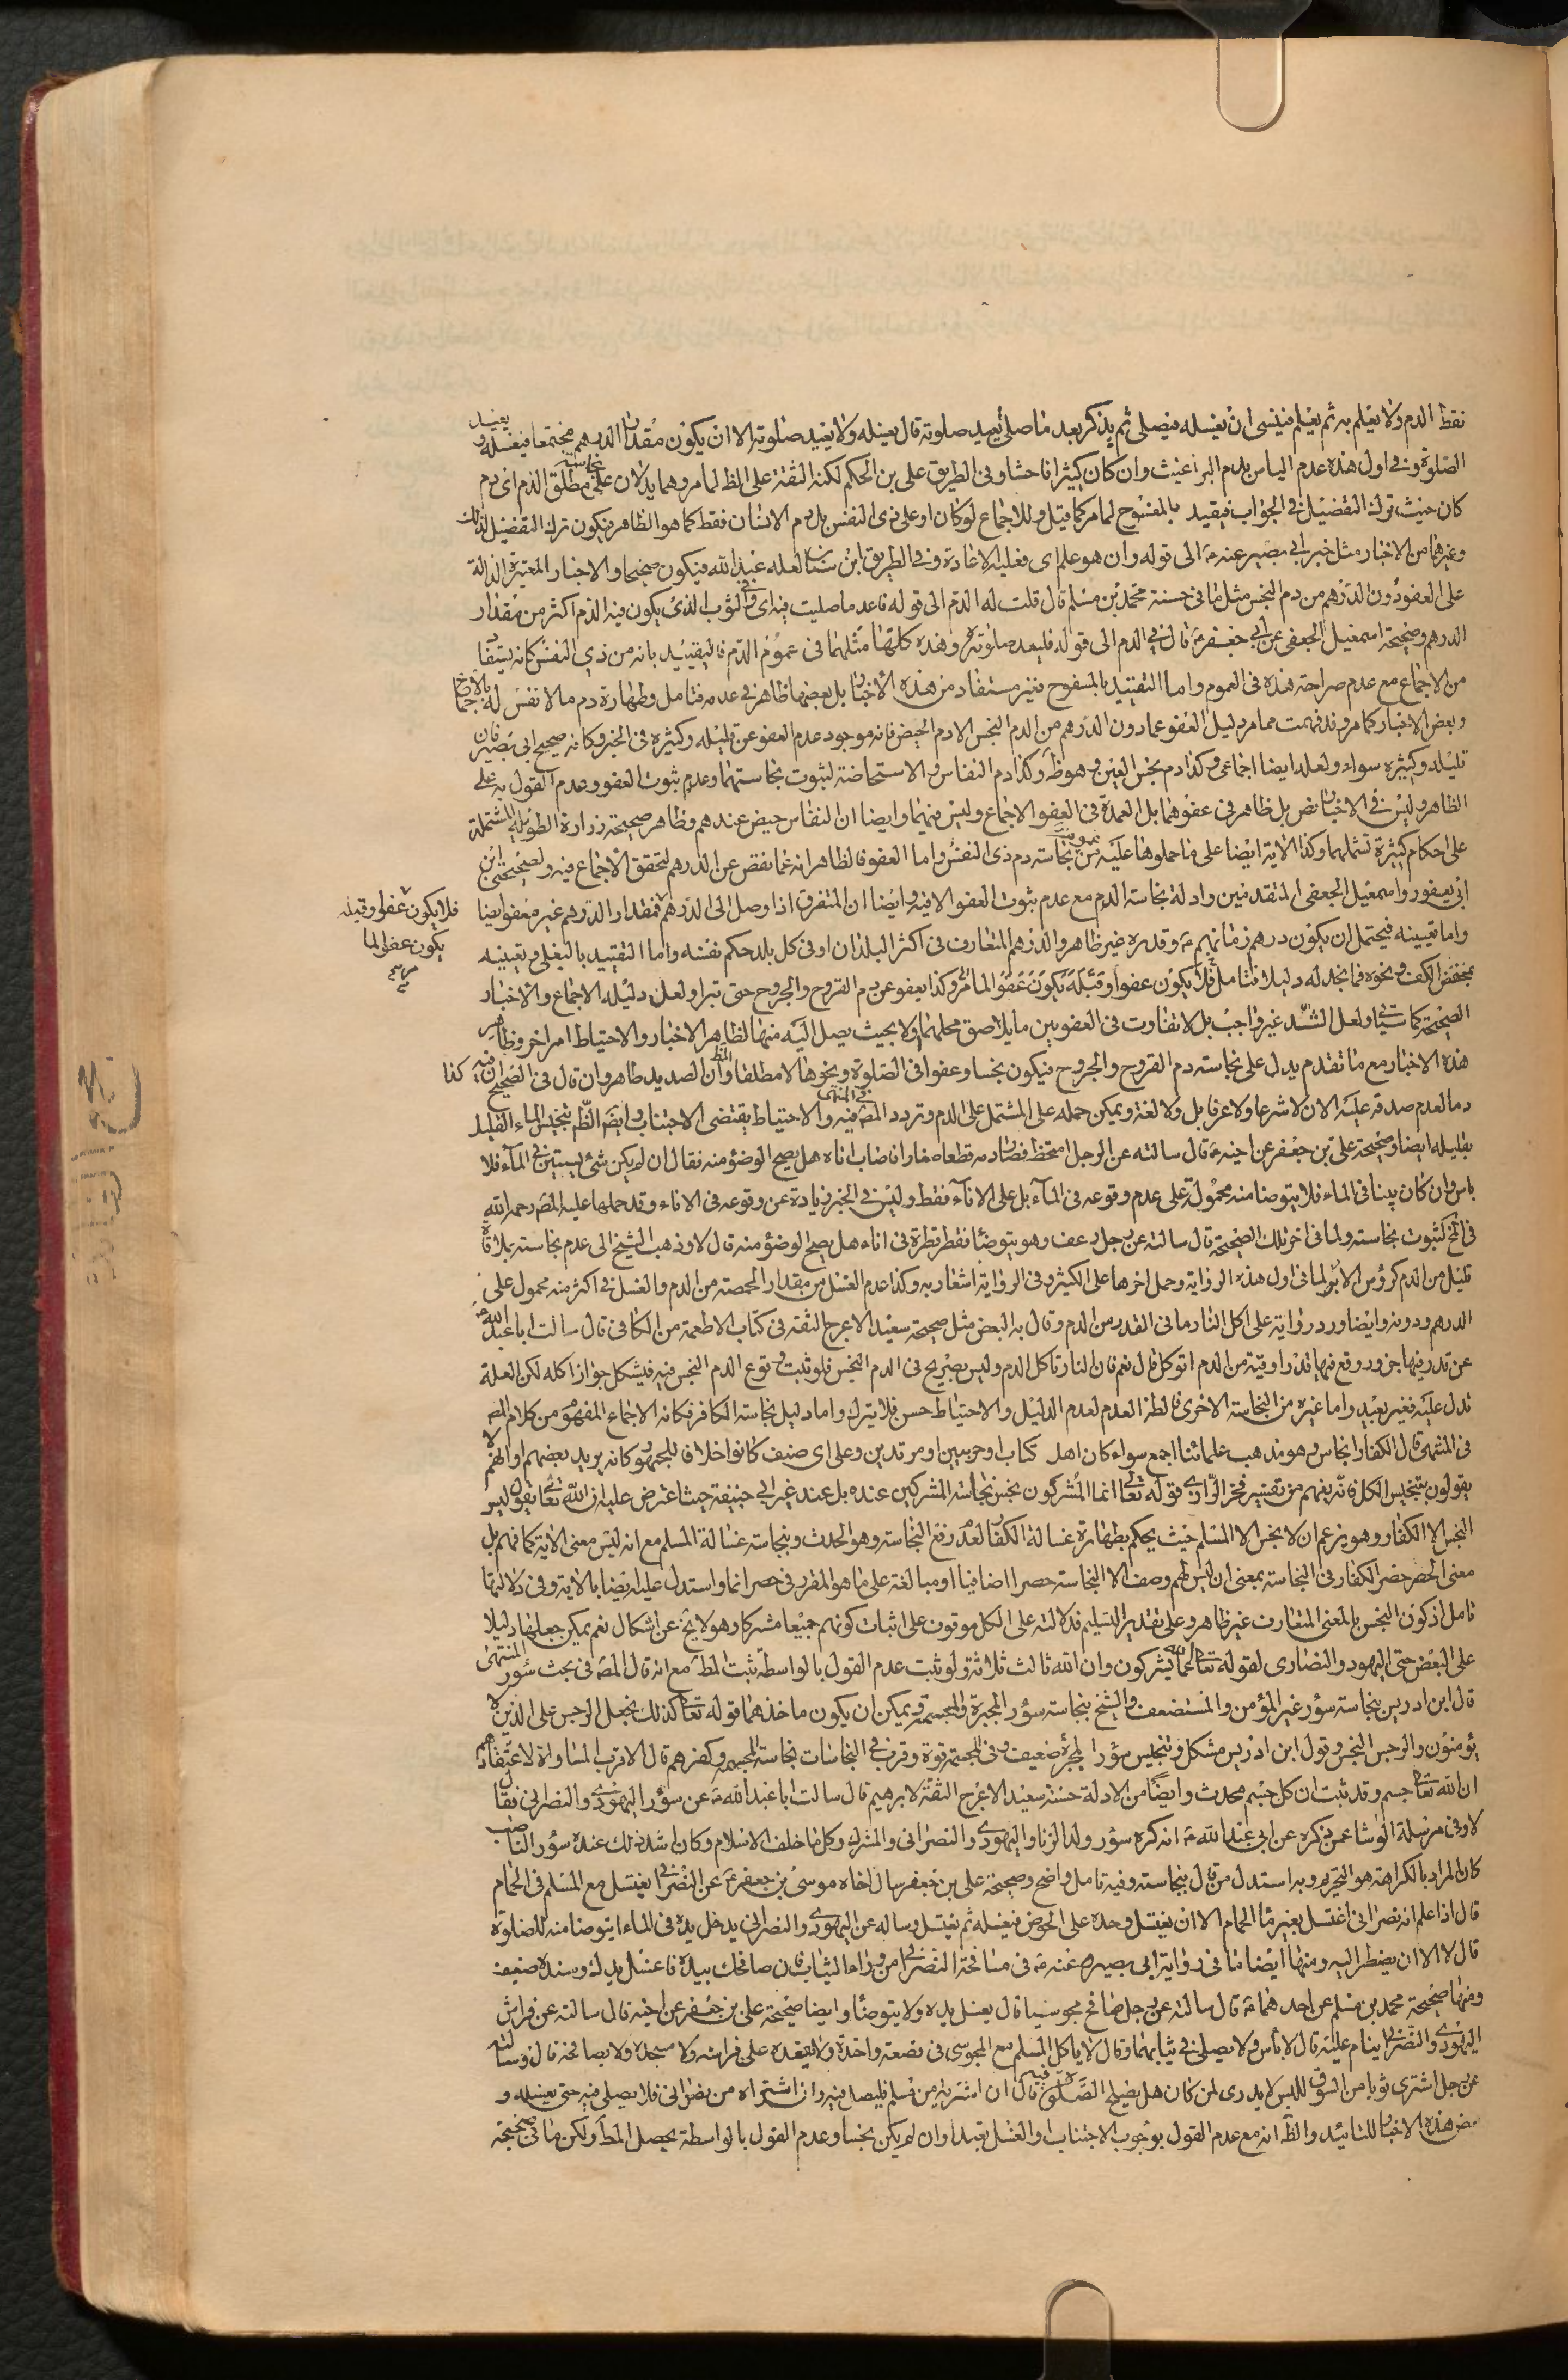 نقط الدم ولا يعلم به ثم يعلم فينسى ان يغسله فيصلى ثم يذكر بعد ما صلى أيعيد صلوته قال يغسله ولا يعيد صلوته الا ان يكون مقدار الدرهم مجتمعا فيغسله و يعيد
الصلوة وفى اول هذه عدم الباس بدم البراغيث وان كان كثيرا فاحشا وفى الطريق على بن الحكم لكنه الثقة على الظ لما مر وهما يدلان على نجاسة مطلق الدم اى دم
كان حيث ترك التفصيل فى الجواب فيقيد بالمسفوح لما مر كما قيل وللاجماع لو كان او على ذى النفس بل دم الانسان فقط كما هو الظاهر فيكون ترك التفصيل لذلك
وغيرهما من الاخبار مثل خبر ابى بصير عنه ع الى قوله وان هو علم اى فعليه الاعادة وفى الطريق ابن سنان لعله عبد الله فيكون صحيحا والاخبار المعتبرة الدالة
على العفو دون الدرهم من دم النجس مثل ما فى حسنة محمد بن مسلم قال قلت له الدم الى قوله فاعد ما صليت فيه اى فى الثوب الذى يكون فيه الدم اكثر من مقدار
الدرهم وصحيحة اسمعيل الجعفى عن ابى جعفر ع قال فى الدم الى قوله فليعد صلوته وهذه كلها مثلهما فى عموم الدم فالتقييد بانه من ذى النفس كانه يستفاد
من الاجماع مع عدم صراحة هذه فى العموم واما التقييد بالمسفوح فغير مستفاد من هذه الاخبار بل بعضها ظاهر فى عدمه فتامل وطهارة دم ما لا نفس له بالاجماع
وبعض الاخبار كما مر وقد فهمت مما مر دليل العفو عما دون الدرهم من الدم النجس الا دم الحيض فانه موجود عدم العفو عن قليله وكثيره فى الخبر وكانه صحيح ابى بصير فان
قليله وكثيره سواء ولعله ايضا اجماعى وكذا دم نجس العين وهو ظ وكذا دم النفاس والاستحاضة لثبوت نجاستهما وعدم ثبوت العفو وعدم القول به على
الظاهر وليس فى الاخبار نص بل ظاهر فى عفوهما بل العمدة فى العفو الاجماع وليس فيهما وايضا ان النفاس حيض عندهم وظاهر صحيحة زرارة الطويلة المشتملة
على احكام كثيرة تشملهما وكذا الاية ايضا على ما حملوها عليه من نجاسة دم ذى النفس واما العفو فالظاهر انه عما نقص عن الدرهم لتحقق الاجماع فيه ولصحيحتى ابن
ابى يعفور واسمعيل الجعفى المتقدمين وادلة نجاسة الدم مع عدم ثبوت العفو الا فيه وايضا ان المتفرق اذا وصل الى الدرهم فمقدار الدرهم غير معفو ايضا
واما تعيينه فيحتمل ان يكون درهم زمانهم ع وقدره غير ظاهر والدرهم المتعارف فى اكثر البلدان او فى كل بلد حكم نفسه واما التقييد بالبغلى وتعيينه
بمنخفض الكف ونحوه فما نجد له دليلا فتامل فلا يكون عفوا وقبله يكون عفوا لما مر وكذا يعفو عن دم القروح والجروح حتى تبرا ولعل دليله الاجماع والاخبار
الصحيحة كما سياتى ولعل الشد غير واجب بل لا تفاوت فى العفو بين ما يلاصق محلهما ولا بحيث يصل اليه منها لظاهر الاخبار والاحتياط امر اخر وظاهر
هذه الاخبار مع ما تقدم يدل على نجاسة دم القروح والجروح فيكون نجسا وعفوا فى الصلوة ونحوها لا مطلقا والظ ان الصديد طاهر وان قال فى الصحيح
دما لعدم صدقه عليه الان لا شرعا ولا عرفا بل ولا لغة ويمكن حمله على المشتمل على الدم وتردد المص فى المنتهى فيه والاحتياط يقتضى الاجتناب وايض الظ تنجيس الماء القليل
بقليله ايضا وصحيحة على بن جعفر عن اخيه ع قال سالته عن الرجل امتخط فصار دمه قطعا صغارا فاصاب اناه هل يصح الوضوء منه فقال ان لم يكن شئ يستبين فى الماء فلا
باس وان كان بينا فى الماء فلا يتوضا منه محمولة على عدم وقوعه فى الماء بل على الاناء فقط وليس فى الخبر زيادة عن وقوعه فى الاناء وقد حملها عليه المص رحمه الله
فى لخ لثبوت نجاسته ولما فى اخر تلك الصحيحة قال سالته عن رجل رعف وهو يتوضا فقطر قطرة فى اناء هل يصح الوضوء منه قال لا وذهب الشيخ الى عدم نجاسته بملاقاة
قليل من الدم كرؤس الابر لما فى اول هذه الرواية وحمل اخرها على الكثير وفى الرواية اشعار به وكذا عدم الغسل من مقدار الحمصة من الدم والغسل فى اكثر منه محمول على
الدرهم ودونه وايضا ورد رواية على اكل النار ما فى القدر من الدم وقال به البعض مثل صحيحة سعيد الاعرج الثقة فى كتاب الاطعمة من الكافى قال سالت ابا عبد الله ع
عن قدر فيها جزور وقع فيها قدر اوقية من الدم اتوكل قال نعم فان النار تاكل الدم وليس بصريح فى الدم النجس فلو ثبت وقوع الدم النجس فيه فيشكل جواز اكله لكن العلة
تدل عليه فغير بعيد واما غيره من النجاسة الاخرى فالظ العدم لعدم الدليل والاحتياط حسن فلا يترك واما دليل نجاسة الكافر فكانه الاجماع المفهوم من كلام المص
فى المنتهى قال الكفار انجاس وهو مذهب علمائنا اجمع سواء كان اهل كتاب او حربيين او مرتدين وعلى اى صنف كانوا خلافا للجمهور كانه يريد بعضهم او انهم لا
يقولون بتنجيس الكل فانه يفهم من تفسير فخر الرازى قوله تعالى انما المشركون نجس نجاسة المشركين عنده بل عند غير ابى حنيفة حيث اعترض عليه ان الله تعالى يقول ليس
النجس الا الكفار وهو يزعم ان لا نجس الا المسلم حيث يحكم بطهارة غسالة الكفار لعدم رفع النجاسة وهو الحدث ونجاسة غسالة المسلم مع انه ليس معنى الاية كما فهم بل
معنى الحصر حصر الكفار فى النجاسة بمعنى ان ليس لهم وصف الا النجاسة حصرا اضافيا او مبالغة على ما هو المقرر فى حصر انما واستدل عليه ايضا بالاية وفى دلالتها
تامل اذ كون النجس بالمعنى المتعارف غير ظاهر وعلى تقدير التسليم فدلالته على الكل موقوف على اثبات كونهم جميعا مشركا وهو لا يخ عن اشكال نعم يمكن جعلها دليلا
على البعض حتى اليهود والنصارى لقوله تعالى عما يشركون وان الله ثالث ثلاثة ولو ثبت عدم القول بالواسطة ثبت المط مع انه قال المص فى بحث سؤر المنتهى
قال ابن ادريس بنجاسة سؤر غير المؤمن والمستضعف والشيخ بنجاسة سؤر المجبرة والمجسمة ويمكن ان يكون ماخذهما قوله تعالى كذلك يجعل الرجس على الذين لا
يؤمنون والرجس النجس وقول ابن ادريس مشكل وتنجيس سؤر المجبرة ضعيف وفى المجسمة قوة وقرب فى النجاسات نجاسة المجسمه وكفرهم قال الاقرب المساواة لاعتقادهم
ان الله تعالى جسم وقد ثبت ان كل جسم محدث وايضا من الادلة حسنة سعيد الاعرج الثقة لابرهيم قال سالت ابا عبد الله ع عن سؤر اليهودى والنصرانى فقال
لا وفى مرسلة الوشا عمن ذكره عن ابى عبد الله ع انه كره سؤر ولد الزنا واليهودى والنصرانى والمشرك وكل ما خلف الاسلام وكان اشد ذلك عنده سؤر الناصب
كان المراد بالكراهة هو التحريم وبه استدل من قال بنجاسته وفيه تامل واضح وصحيحة على بن جعفر سال اخاه موسى بن جعفر ع عن النصرانى يغتسل مع المسلم فى الحمام
قال اذا علم انه نصرانى اغتسل بغير ماء الحمام الا ان يغتسل وحده على الحوض فيغسله ثم يغتسل وساله عن اليهودى والنصرانى يدخل يده فى الماء ايتوضا منه للصلوة
قال لا الا ان يضطر اليه ومنها ايضا ما فى رواية ابى بصير عنه ع فى مصافحة النصرانى من وراء الثياب فان صافحك بيده فاغسل يدك وسنده ضعيف
ومنها صحيحة محمد بن مسلم عن احدهما ع قال سالته عن رجل صافح مجوسيا قال يغسل يده ولا يتوضا وايضا صحيحة على بن جعفر عن اخيه قال سالته عن فراش
اليهودى والنصرانى ينام عليه قال لا باس ولا يصلى فى ثيابهما وقال لا ياكل المسلم مع المجوسى فى قصعة واحدة ولا يقعده على فراشه ولا مسجده ولا يصافحه قال وسالته
عن رجل اشترى ثوبا من السوق للبس لا يدرى لمن كان هل يصلح الصلوة فيه قال ان اشتريه من مسلم فليصل فيه وان اشتراه من نصرانى فلا يصلى فيه حتى يغسله و
بعض هذه الاخبار للتائيد والظ انه مع عدم القول بوجوب الاجتناب والغسل تعبدا وان لم يكن نجسا وعدم القول بالواسطة يحصل المط ولكن ما فى صحيحة
فلا يكون عفوا وقبله
يكون عفوا لما
مر